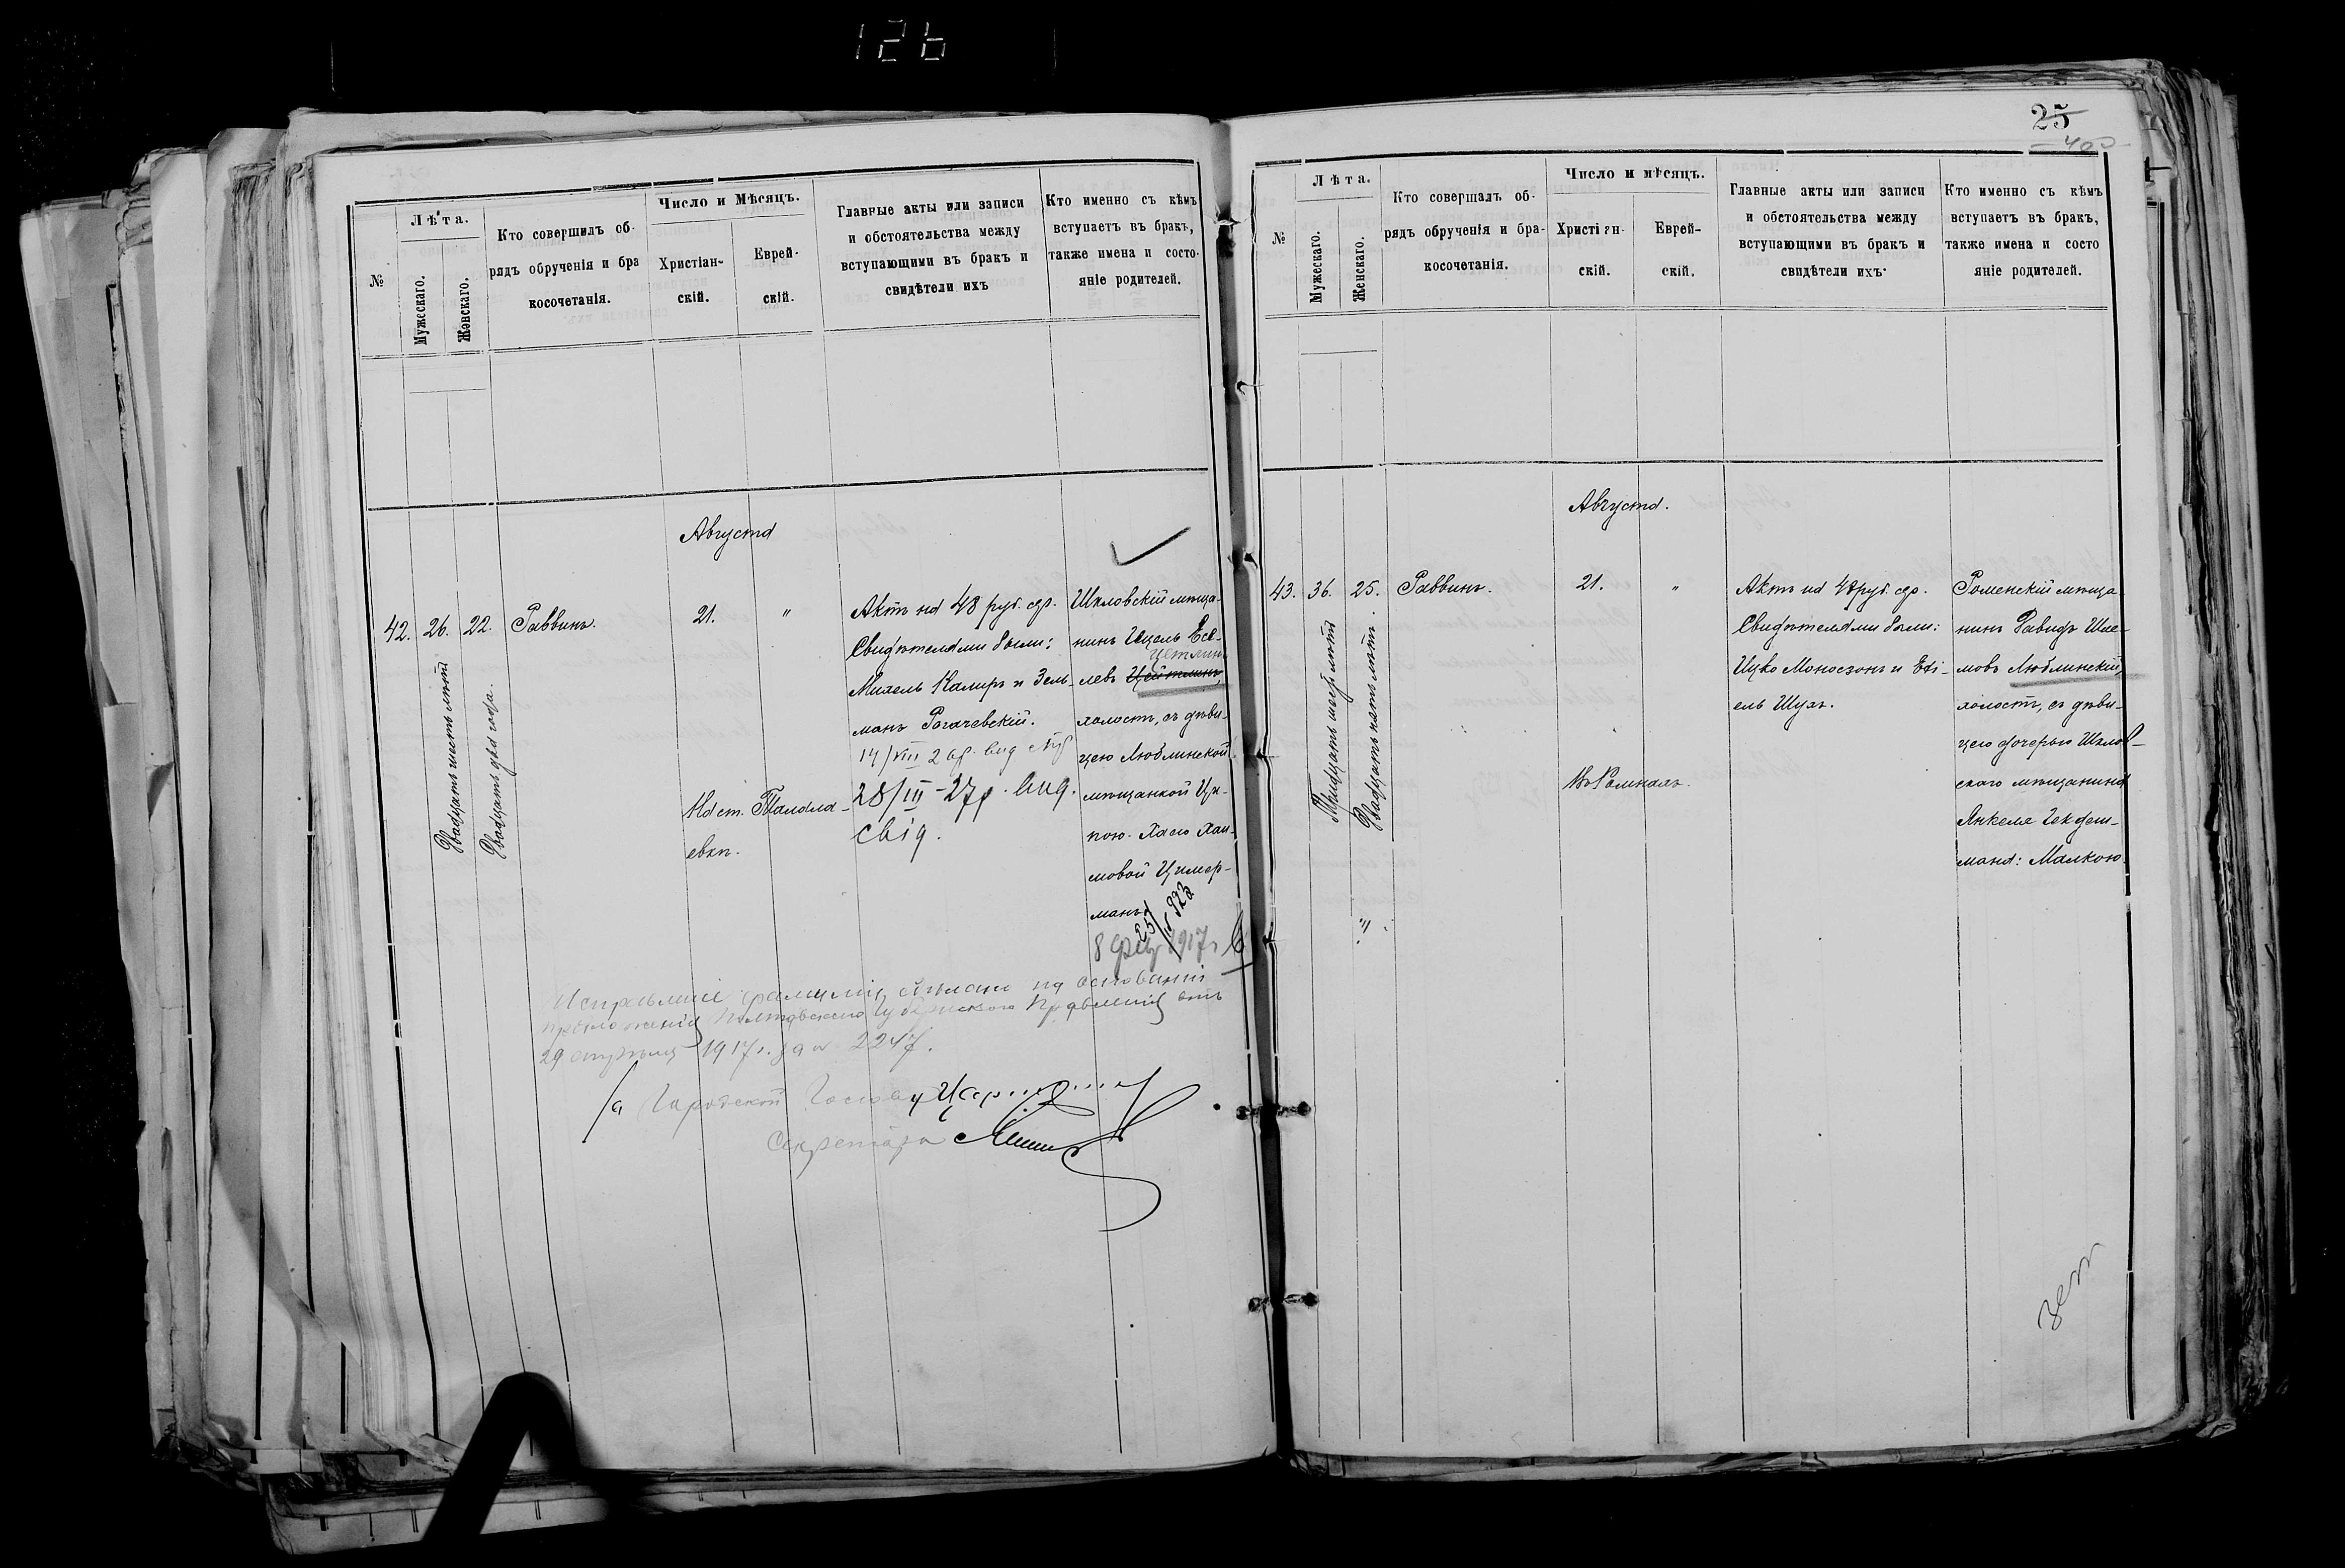 126
№
Лѣта.
Мужескаго.
Женскаго.
Кто совершилъ об-
рядъ обрученія и бра
косочетанія.
Число и Мѣсяцъ.
Христіан-
скій.
Еврей-
скій.
Главные акты или записи
и обстоятельства между
вступающими въ бракъ и
свидѣтели ихъ
Кто именно съ кѣмъ
вступаетъ въ бракъ,
также имена и состо-
яніе родителей.
Августа
42.
26.
Двадцать шесть лѣтъ
22.
Двадцать два года.
Раввинъ.
21.
"
На ст. Ромодла-
евкп.
Актъ на 48 руб. сер.
Свидѣтелями были:
Михель Калиръ и Зель-
манъ Рогачевскій.
14/VIII 2
28/III-27р.
Шкловскій мѣща-
нинъ Ицель Есе-
Цетлинъ
левъ Цейтлинъ,
холостъ, съ дѣви-
цею Люблинской
мѣщанкой Ци-
пою-Хаею Хаи-
мовой Цимер-
манъ
8 1917 г
Исправленіе фамиліи сдѣлано на основаніи
предложенія Полтавскаго Губернскаго Правленія отъ
29 1917 г. за № 2247.
Городской Голова
Секретарь
25
400
№
Лѣта.
Мужескаго.
Женскаго.
Кто совершалъ об-
рядъ обрученія и бра-
косочетанія.
Число и мѣсяцъ.
Христіан-
скій.
Еврей-
скій.
Главные акты или записи
и обстоятельства между
вступающими въ бракъ и
свидѣтели ихъ.
Кто именно съ кѣмъ
вступаетъ въ бракъ,
также имена и состо
яніе родителей.
Августа.
43.
36.
Тридцать шесть лѣтъ
25.
Двадцать пять лѣтъ
"
Раввинъ.
21.
"
Въ Ромнахъ.
Актъ на 48 руб. сер.
Свидѣтелями были:
Ицко Моносзонъ и Ехі-
ель Шухъ.
Роменскій мѣща
нинъ Давидъ Шле-
мовъ Люблинскій,
холостъ, съ дѣви-
цею дочерью Шклов-
скаго мѣщанина
Янкеля
мана: Малкою.